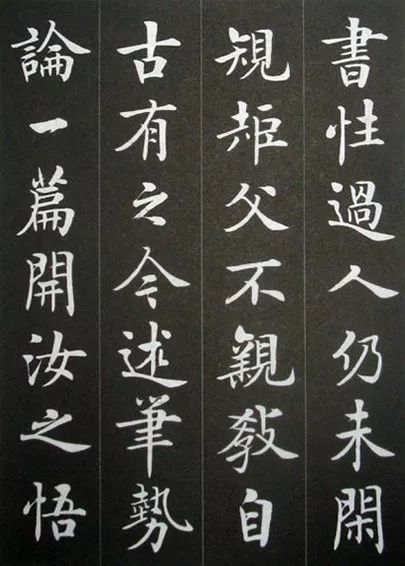 書性過人仍未閑
規矩父不親教自
古有之今述筆勢
論一篇開汝之悟